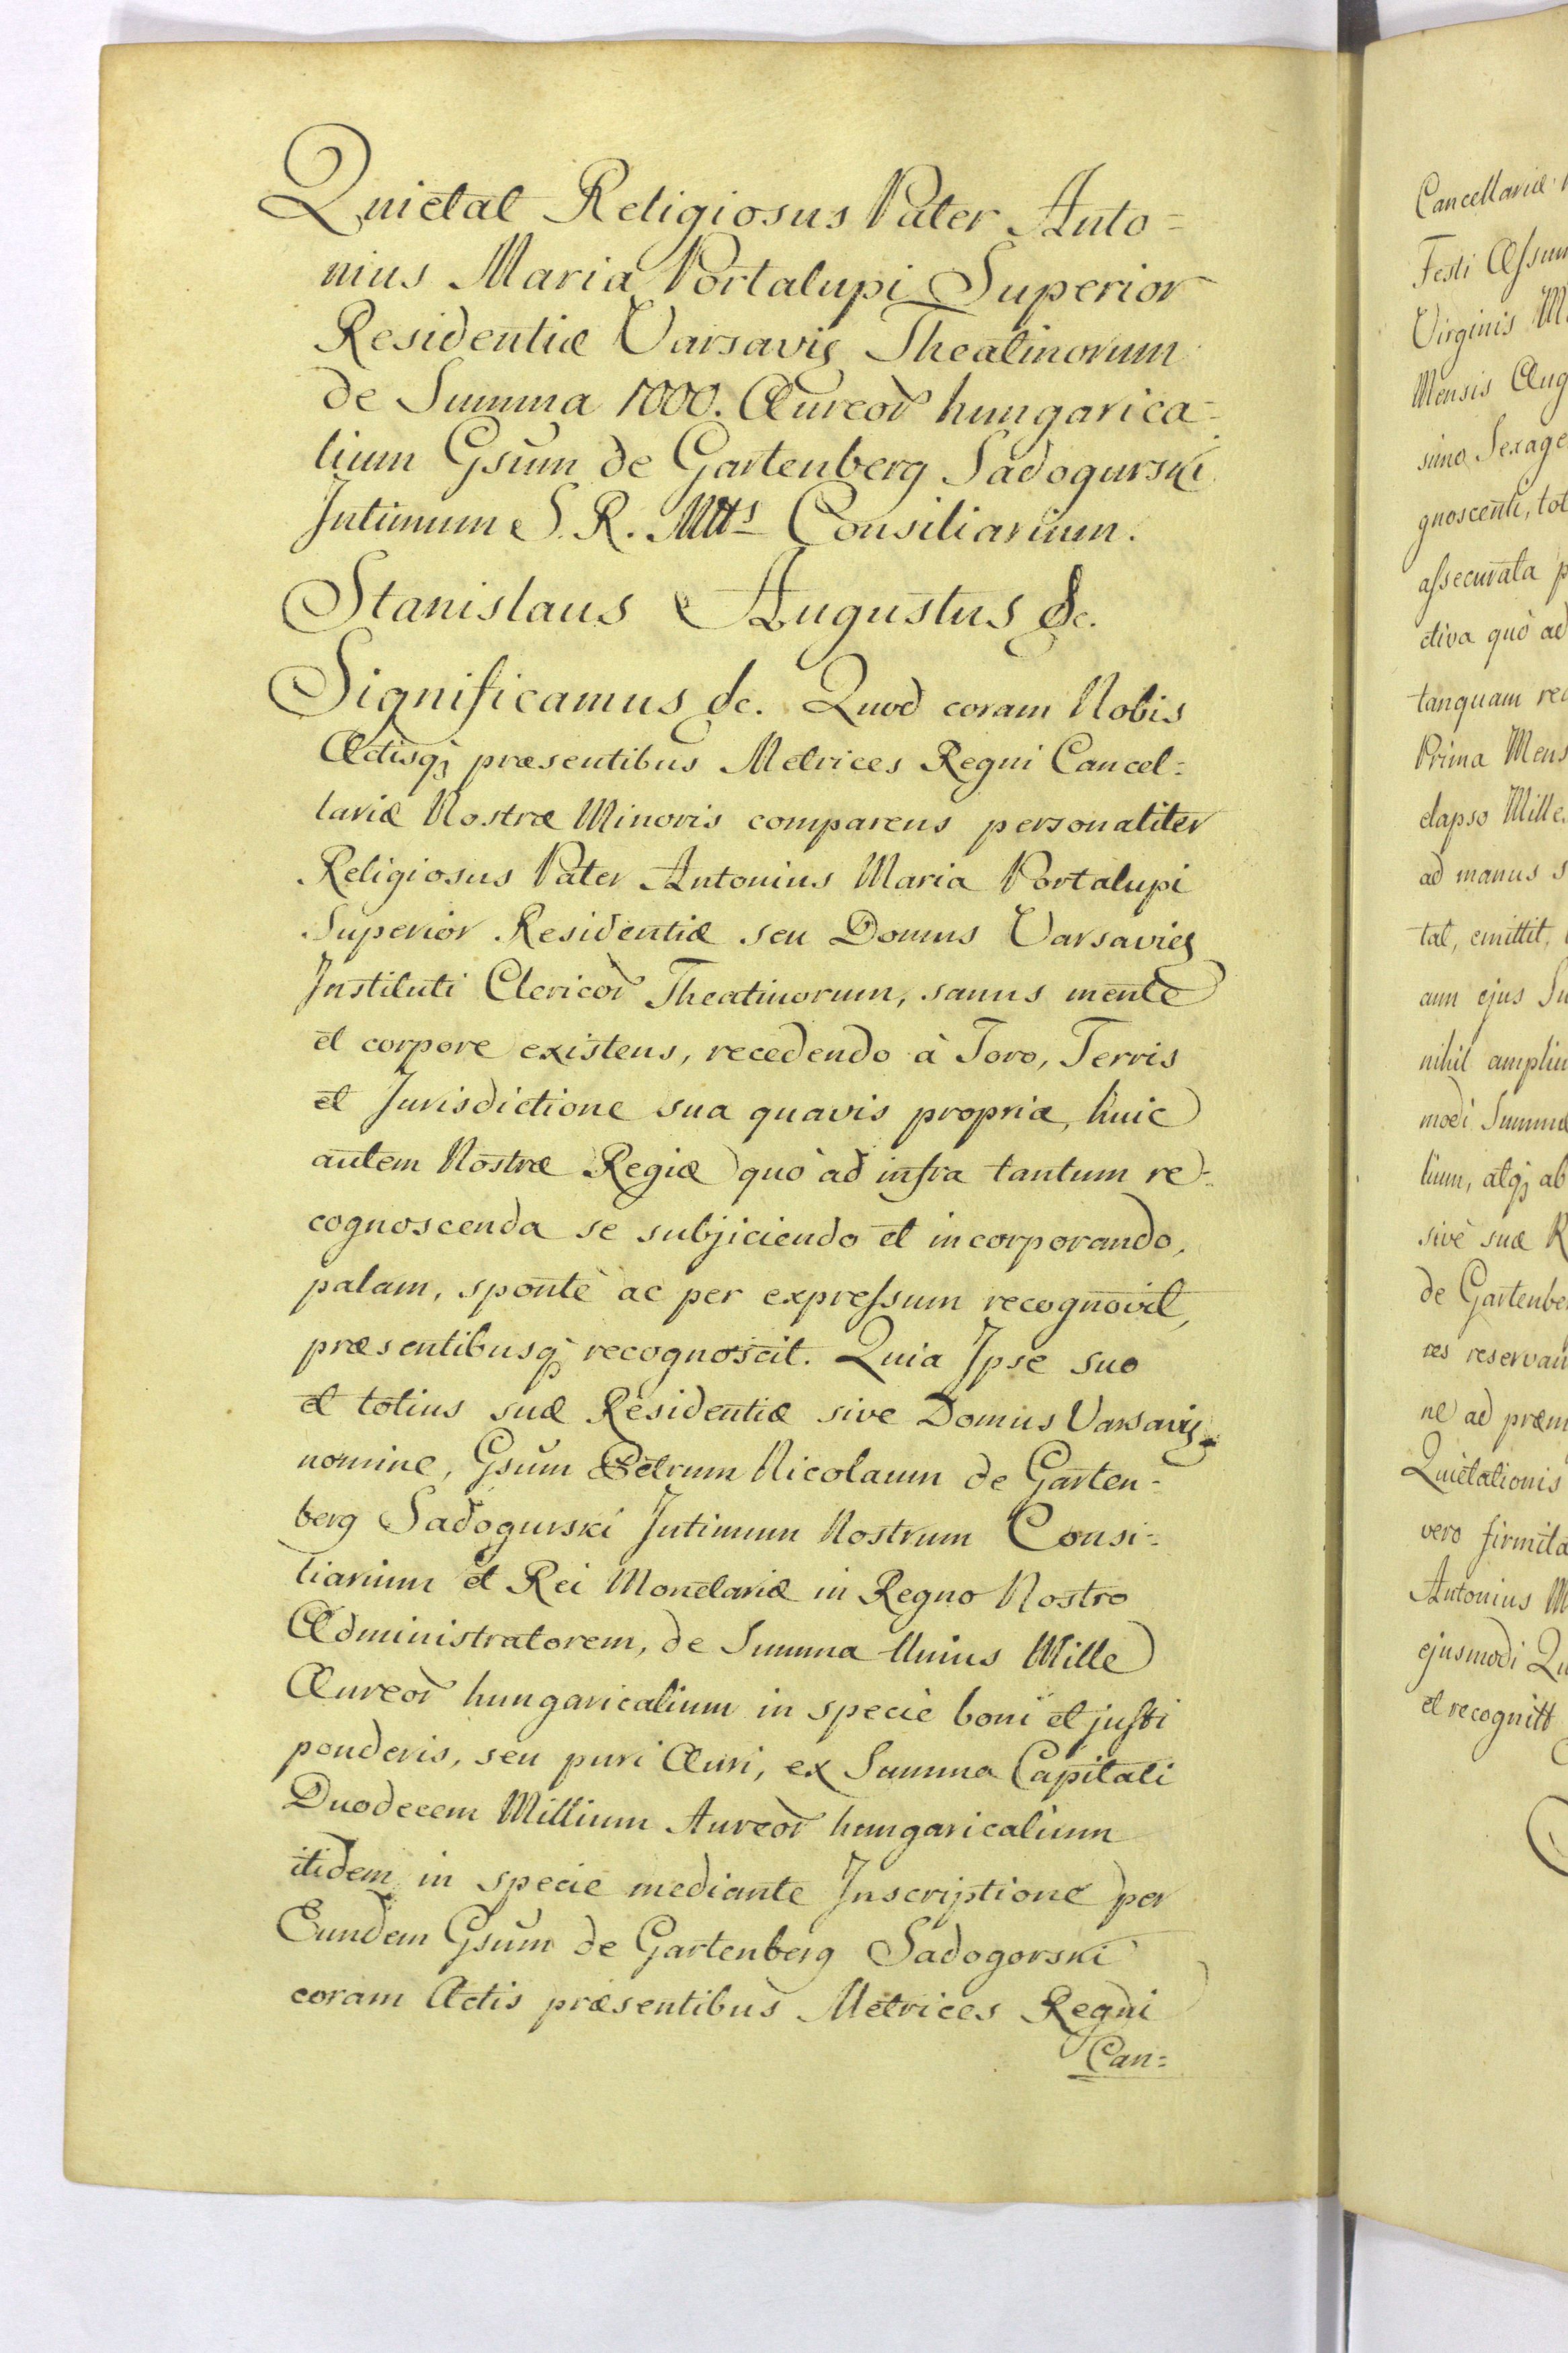 Quietat Religiosus Pater Anto=
nius Maria Portalupi Superior
Residentiæ Varsavię Theatinorum
de Summa 1000. Aureor hungarica=
lium Gsum de Gartenberg Sadogurski
Intimum S. R. Mtts Consiliarium.
Stanislaus Augustus &c.
Significamus &c. Quod coram Nobis
Actisq; præsentibus Metrices Regni Cancel=
lariæ Nostræ Minoris comparens personaliter
Religiosus Pater Antonius Maria Portalupi
Superior Residentiæ seu Domus Varsavię
Instituti Clericor Theatinorum, sanus mente
et corpore existens, recedendo à Foro, Terris
et Jurisdictione sua quavis propria, huic
autem Nostræ Regiæ quò ad infra tantum re=
cognoscenda se subjiciendo et incorporando,
palam, spontè ac per expressum recognovit,
præsentibusq; recognoscit. Quia Ipse suo
et totius suæ Residentiæ sive Domus Varsavię
nomine, Gsum Petrum Nicolaum de Garten=
berg Sadogurski Intimum Nostrum Consi=
liarium et Rei Monetariæ in Regno Nostro
Administratorem, de Summa Unius Mille
Aureor hungaricalium in specie boni et justi
ponderis, seu puri Auri, ex Summa Capitali
Duodecem Millium Aureor hungaricalium
itidem in specie mediante Inscriptione per
Eundem Gsum de Gartenberg Sadogorski
coram Actis præsentibus Metrices Regni
Can=
Cancellariæ
Festi
Virginis
Mensis
simo
gnoscenti,
assecurata
ctiva quò ad
tanquam
Prima
elapso
ad manus
tat, emittit,
ejus
nihil
modi Summæ
lium, atq; ab
sivè suæ
de
res
ne ad
Quietationis
vero
Antonius
ejusmodi
et recognitt